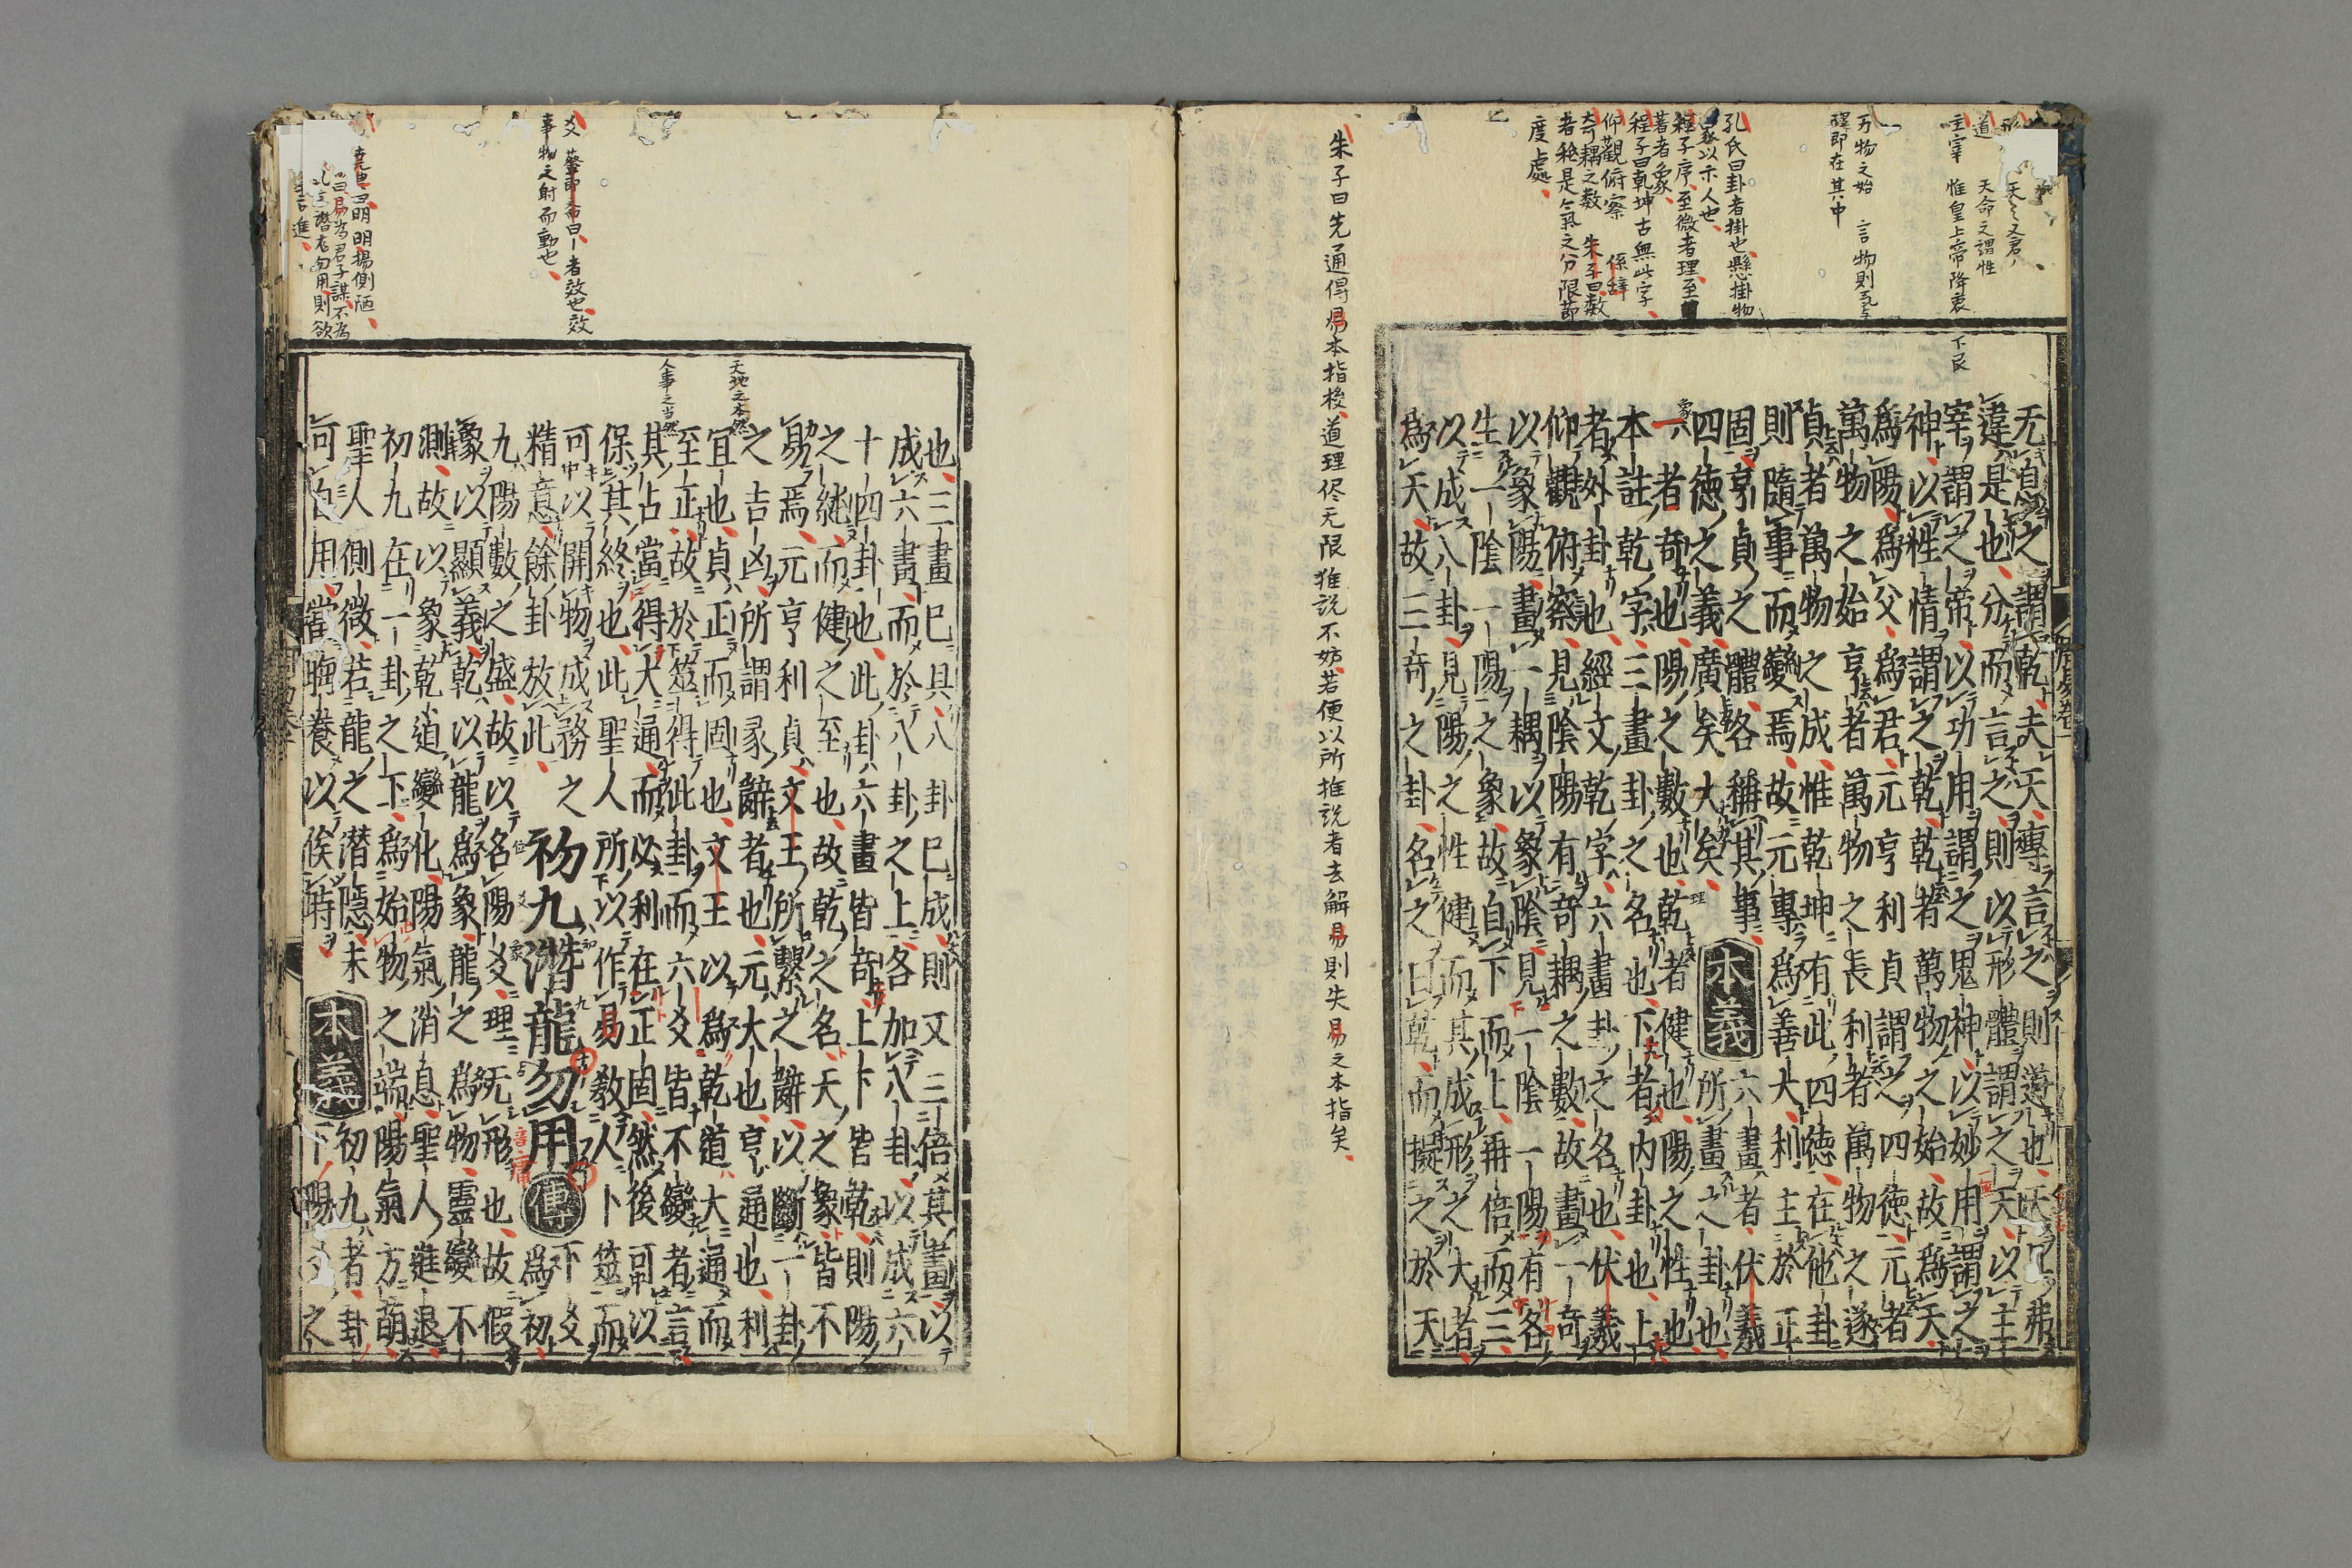 无息之謂乾夫天專言之則道也天且弗
違是也分而言之則以形體謂之天以主
宰謂之帝以功用謂之鬼神以妙用謂之
神以性情謂之乾乾者萬物之始故為天
為陽為父為君元亨利貞謂之四德元者
萬物之始亨者萬物之長利者萬物之遂
貞者萬物之成惟乾坤有此四德在他卦
則隨事而變焉故元專為善大利主於正
固亨貞之體各稱其事
四德之義廣矣大矣
本義
六畫者伏羲
所畫之卦也
一者奇也陽之數也乾者健也陽之性也
本註乾字三畫卦之名也下者內卦也上
者外卦也經文乾字六畫卦之名也伏羲
仰觀俯察見陰陽有奇耦之數故畫一奇
以象陽畫一耦以象陰見一陰一陽有各
生一陰一陽之象故自下而上再倍而三
以成八卦見陽之性健而其成形之大者
為天故三奇之卦名之曰乾而擬之於天
也三畫已具八卦已成則又三倍其畫以
成六畫而於八卦之上各加八卦以成六
十四卦也此卦六畫皆奇上下皆乾則陽
之純而健之至也故乾之名天之象皆不
易焉元亨利貞文王所繫之辭以斷一卦
之吉凶所謂彖辭者也元大也亨通也利
宜也貞正而固也文王以為乾道大通而
至正故於筮得此卦而六爻皆不變者言
其占當得大通而必利在正固然後可以
保其終也此聖人所以作易教人卜筮而
可以開物成務之
精意餘卦放此
初九潛龍勿用
傳
下爻
為初
九陽數之盛故以名陽爻理无形也故假
象以顯義乾以龍為象龍之為物靈變不
測故以象乾道變化陽氣消息聖人進退
初九在一卦之下為始物之端陽氣方萌
聖人側微若龍之潛隱未
可自用當晦養以俟時
本義
初九者卦
下陽之
朱子曰先通得易本指後道理侭无限推説不妨若便以所推説者去解易則失易之本指矣
孔氏曰卦者掛也懸掛物
象以示人也
程子序至微者理至
著者象
程子曰乾坤古無此字
仰觀俯察 係辞
奇耦之数 朱子曰数
者秖是气之分限節
度處
万物之始
主宰 惟皇上帝降衷
天命之謂性
天地之本然
人事之当然
者效也效
事物之射而動也
堯典曰明明揚側陋